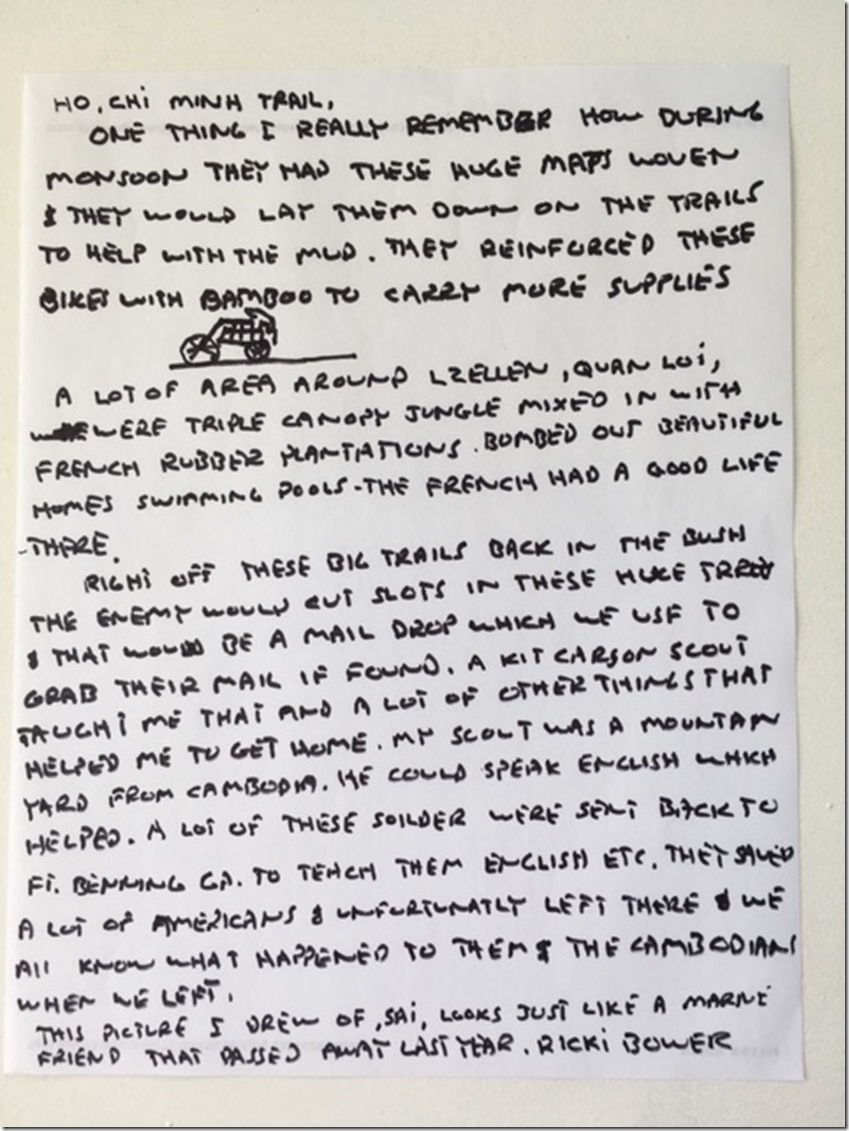 HO, CHI MINH TRAIL,
ONE THING I REALLY REMEMBER HOW DURING
MONSOON THEY HAD THESE HUGE MATS WOVEN
& THEY WOULD LAY THEM DOWN ON THE TRAILS
TO HELP WITH THE MUD. THEY REINFORCED THESE
BIKES WITH BAMBOO TO CARRY MORE SUPPLIES
A LOT OF AREA AROUND LZELLEN, QUAN LOI,
WERE TRIPLE CANOPY JUNGLE MIXED IN WITH
FRENCH RUBBER PLANTATIONS. BOMBED OUT BEAUTIFUL
HOMES SWIMMING POOLS - THE FRENCH HAD A GOOD LIFE
-THERE.
RIGHT OFF THESE BIG TRAILS BACK IN THE BUSH
THE ENEMY WOULD CUT SLOTS IN THESE HUGE
& THAT WOULD BE A MAIL DROP WHICH WE USE TO
GRAB THEIR MAIL IF FOUND. A KIT CARSON SCOUT
TAUGHT ME THAT AND A LOT OF OTHER THINGS THAT
HELPED ME TO GET HOME. MY SCOUT WAS A MOUNTAIN
YARD FROM CAMBODIA. HE COULD SPEAK ENGLISH WHICH
HELPED. A LOT OF THESE SOILDER WERE SENT BACK TO
FT. BENNING GA. TO TEACH THEM ENGLISH ETC. THEY SAVED
A LOT OF AMERICANS & UNFORTUNATLY LEFT THERE & WE
All KNOW WHAT HAPPENED TO THEM & THE CAMBODIANS
WHEN WE LEFT.
THIS PICTURE I DREW OF, SAI, LOOKS JUST LIKE A MARNE
FRIEND THAT PASSED AWAY LAST YEAR. RICKI BOWER